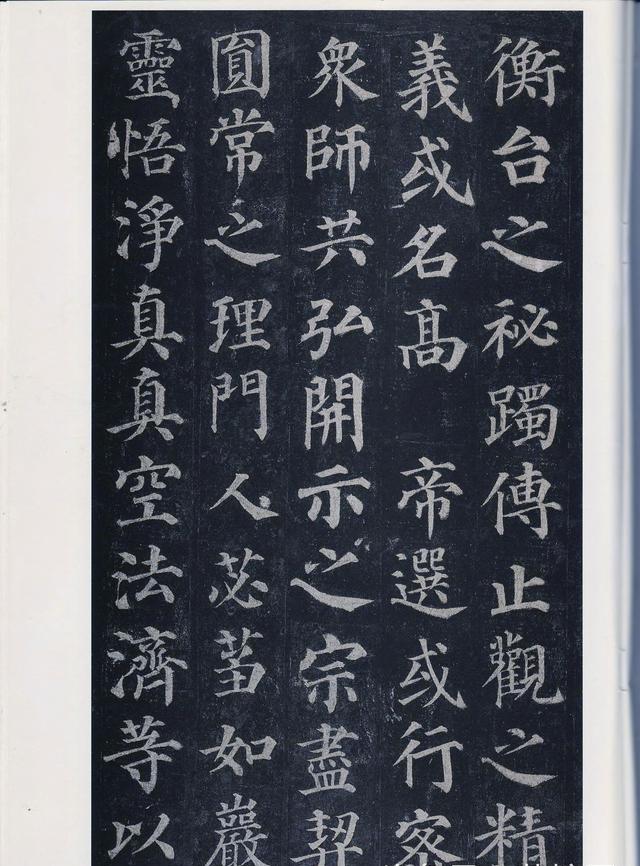 衡台之秘躅傳止觀之精
義或名髙帝選或行密
衆師共弘開示之宗盡契
圎常之理門人苾蒭如巖
靈悟淨真真空法濟等以